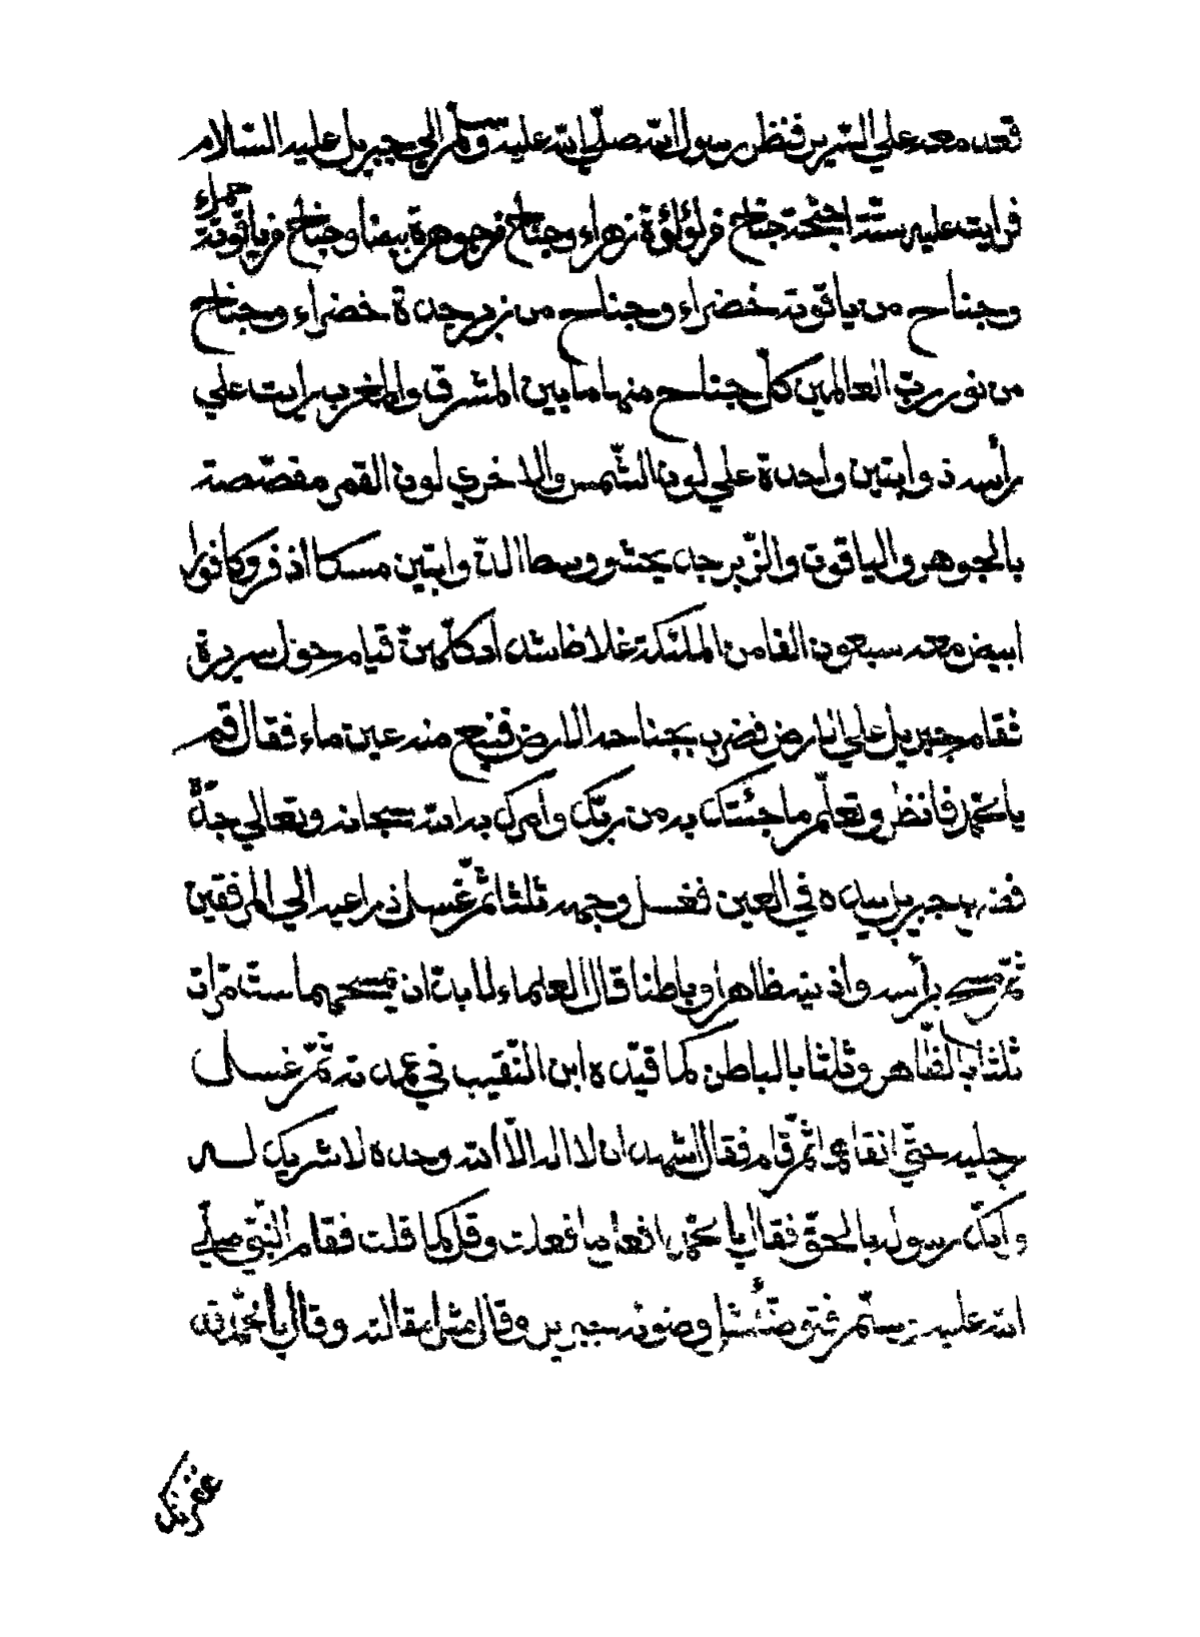 فقعد معه علي السّرير فنظر رسول الله صلّي الله عليه وسلّم الي جبريل عليه السّلام
فرايت عليه ستّة اجنحة جناح من لؤلؤة زهراء وجناح من جوهرة بيضا وجناح من ياقوتة حمراء
وجناح من ياقوتة خضراء وجناح من زبرجدة خضراء وجناح
من نور ربّ العالمين كلّ جناح منها ما بين المشرق والمغرب رايت علي
رأسه ذوابتين واحدة علي لون الشّمس والاخري لون القمر مفصّصة
بالجوهر والياقوت والزّبرجد يحشو وسط الذوابتين مسكا اذفر وكافورا
ابيض معه سبعون الفا من الملئكة غلاظ شداد كلّهنّ قيام حول سريرة
ثقام جبريل علي الارض فضرب بجناحه الارض فنبع منه عين ماء فقال قم
يا محمّد فانظر وتعلّم ما جئتك به من ربّك وأمرك به الله سبحانه وتعالي جدّة
فضرب جبريل بيده في العين فغسل وجهه ثلثا ثمّ غسل ذراعيه الي المرفقين
ثمّ مسح برأسه واذنيه ظاهرا وباطنا قال العلماء لا بدّ ان يمسحهما ستّ مرّات
ثلثا بالظّاهر وثلثا بالباطن كما قيّده ابن النّقيب في عمدته ثمّ غسل
رجليه حتّي انقاهما ثمّ قام فقال اشهد ان لا اله الّا الله وحده لا شريك له
وانّك رسوله بالحقّ فقال يا محمّد افعل ما فعلت وقل كما قلت فقام النّبيّ صلّي
الله عليه وسلّم فتوضّأ مثل وضوئه جبريل وقال مثل مقالته وقال يا محمّد قد
غفر لك